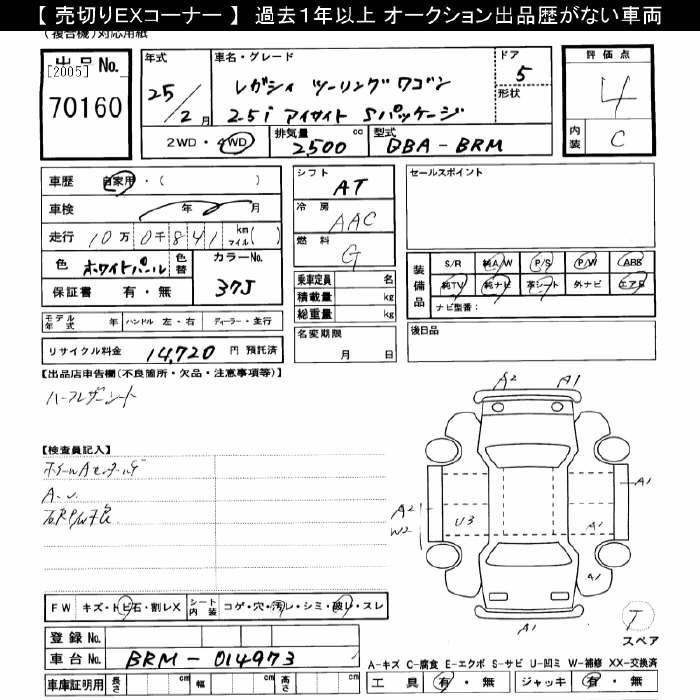 【 売切りEXコーナー 】 過去1年以上 オークション出品歴がない車両
(複合機)対応用紙
出品No.
[2005]
70160
年式
25/2月
車名・グレード
レガシィ ツーリングワゴン
2.5i アイサイト Sパッケージ
ドア
5
形状
評価点
4
内装
C
2WD・4WD
排気量
2500 cc
型式
DBA-BRM
車歴 自家用・( )
車検 年 月
走行 10万0千841 km マイル( )
色 ホワイトパール 色替
カラーNo.
37J
保証書 有・無
シフト
AT
冷房
AAC
燃料
G
乗車定員 名
積載量 kg
総重量 kg
名変期限
月 日
セールスポイント
装備品
S/R 純A/W P/S P/W ABS
純TV 純ナビ 革シート 外ナビ エアB
ナビ型番:
後日品
モデル年式 年 ハンドル 左・右 ディーラー・並行
リサイクル料金 14,720 円 預託済
【出品店申告欄(不良箇所・欠品・注意事項等)】
ハーフレザーシート
【検査員記入】
A2 A1
A2
W2
U3
A1
A1
A1
A1
T
スペア
FW キズ・トビ石・割レX シート内装 コゲ・穴・汚レ・シミ・破レ・スレ
登録No.
車台No. BRM-014973
車庫証明用 長さ cm 幅 cm 高さ cm
A-キズ C-腐食 E-エクボ S-サビ U-凹ミ W-補修 XX-交換済
工具 有・無 ジャッキ 有・無